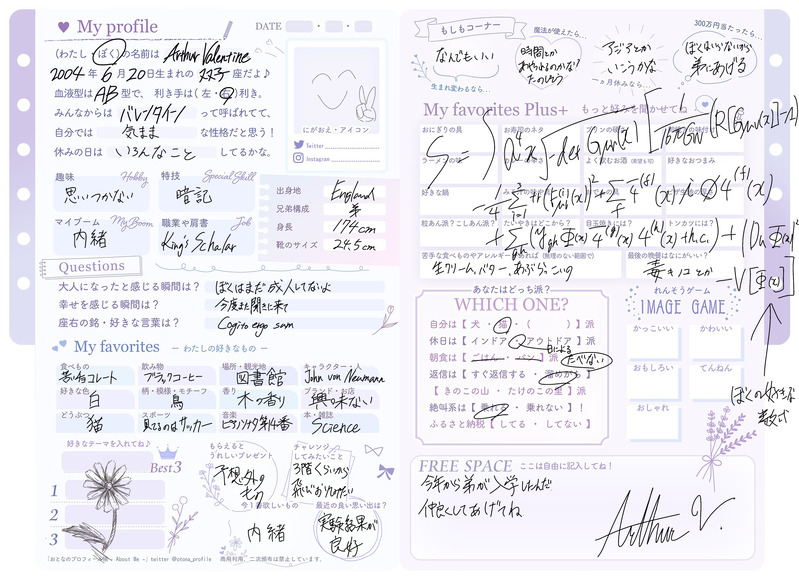 My profile
DATE
(わたし ・ ぼく)の名前は Arthur Valentine
2004年 6月 20日生まれの ふたご座だよ♪
血液型は AB 型で、 利き手は(左・右)利き。
みんなからは バレンタイン って呼ばれてて、
自分では 気まま な性格だと思う！
休みの日は いろんなこと してるかな。
にがおえ・アイコン
Twitter
Instagram
趣味 Hobby
思いつかない
特技 Special Skill
暗記
マイブーム My Boom
内緒
職業や肩書 Job
King's Scholar
出身地 England
兄弟構成 弟
身長 174cm
靴のサイズ 24.5cm
Questions
大人になったと感じる瞬間は？ ぼくはまだ成人してないよ
幸せを感じる瞬間は？ 今度また聞きに来て
座右の銘・好きな言葉は？ Cogito ergo sum
My favorites − わたしの好きなもの −
食べもの 苦いチョコレート
飲み物 ブラックコーヒー
場所・観光地 図書館
キャラクター・人 John von Neumann
好きな色 白
柄・模様・モチーフ 鳥
香り 木の香り
ブランド・お店 興味ない
どうぶつ 猫
スポーツ 見てるのはサッカー
音楽 ピアノソナタ第14番
本・雑誌 Science
好きなテーマを入れてね♪
Best3
1
2
3
もらえると
うれしいプレゼント
予想外の
もの
チャレンジ
してみたいこと
3階くらいから
飛びおりたい
今1番欲しいもの
内緒
最近の良い思い出は？
実験結果が
良好
「おとなのプロフィール帳 - About Me -」twitter @otona_profile 商用利用、二次頒布は禁止しています。
もしもコーナー
なんでもいい
生まれ変わるなら…
魔法が使えたら…
時間とか
たのしそう
アジアとか
いこうかな
一ヵ月休みなら…
300万円当たったら…
ぼくはいらないから
弟にあげる
My favorites Plus+ もっと好みを聞かせてね
おにぎりの具
お寿司のネタ
ラーメンの味
よく飲むお酒
好きなおつまみ
好きな鍋
粒あん派？こしあん派？
たいやきはどこから？
目玉焼きには？
トンカツには？
苦手な食べものやアレルギーがあれば(無理のない範囲で)
生クリーム、バター、あぶらっこいの
最後の晩餐はなにがいい？
毒キノコとか
ぼくの好きな
数式
あなたはどっち派？
WHICH ONE?
自分は【 犬 ・ 猫 ・ ( ) 】派
休日は【 インドア ・ アウトドア 】派
日による
朝食は【 ごはん ・ パン 】派
たべない
返信は【 すぐ返信する ・ 溜めがち 】
【 きのこの山 ・ たけのこの里 】派
絶叫系は【 乗れる ・ 乗れない 】！
ふるさと納税【 してる ・ してない 】
れんそうゲーム
IMAGE GAME
かっこいい
かわいい
おもしろい
てんねん
おしゃれ
FREE SPACE ここは自由に記入してね！
今年から弟が入学したんだ
仲良くしてあげてね
Arthur V.